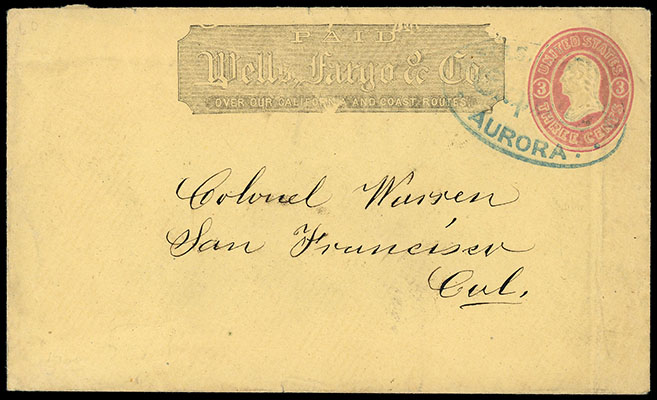 PAID
Wells, Fargo & Co.
OVER OUR CALIFORNIA AND COAST ROUTES
UNITED STATES
3 3
THREE CENTS
AURORA.
Colonel Warren
San Francisco
Cal.